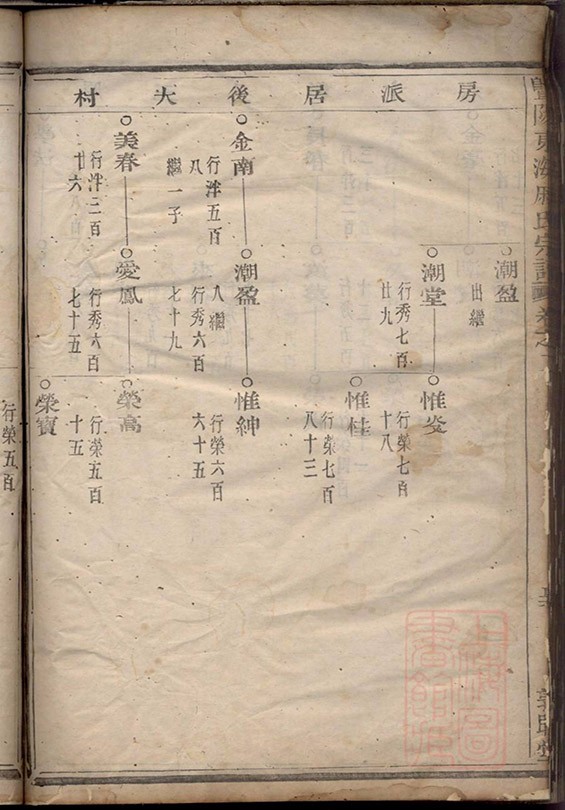 房派居後大村
潮盈
出繼
潮堂
行秀七百
廿九
惟㷠
行榮七百
十八
惟桂
行榮七百
八十三
金南
行泮五百
八
繼一子
潮盈
入繼
行秀六百
七十九
惟紳
行榮六百
六十五
美春
行泮二百
廿六
愛鳳
行秀六百
七十五
榮高
行榮五百
十五
榮寶
行榮五百
暨陽東海
氏宗譜卷之